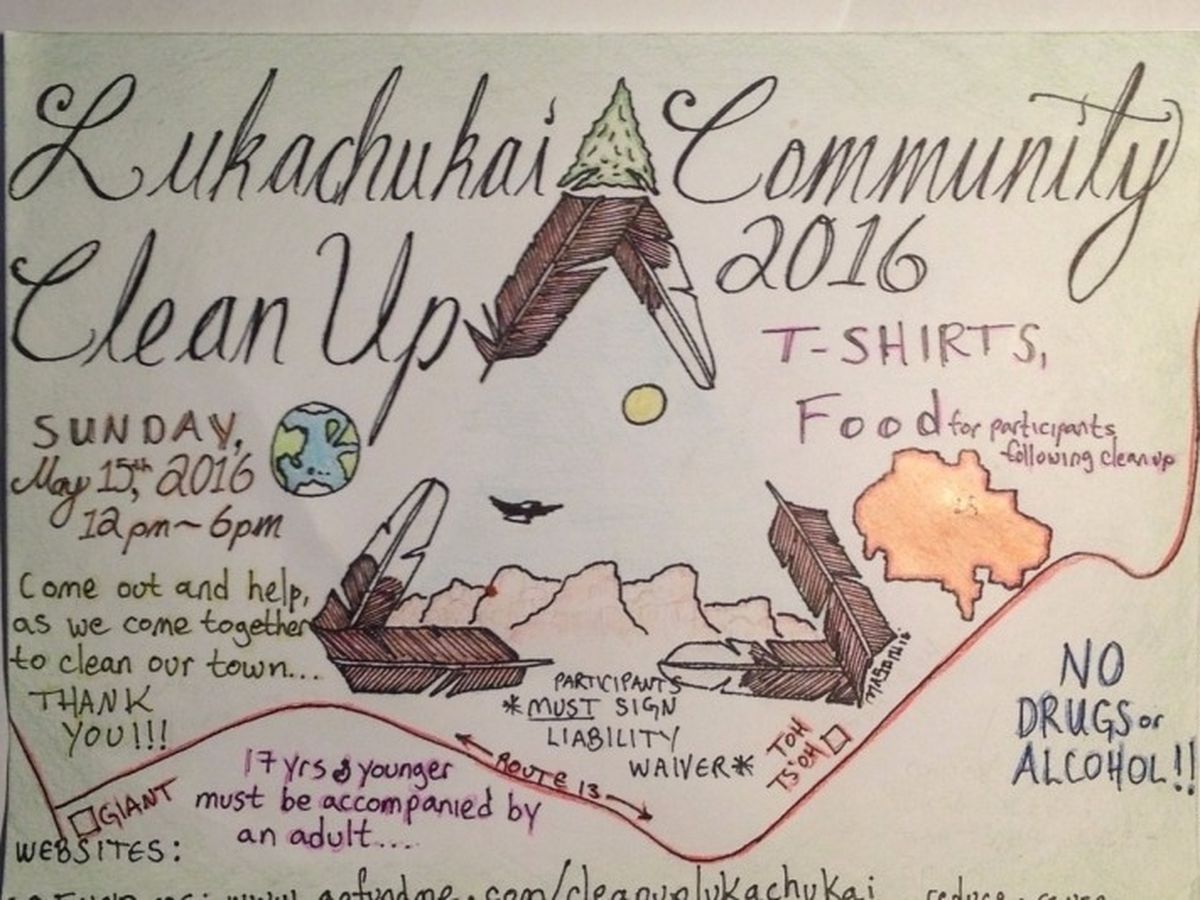 Lukachukai Community
Clean Up 2016
T-SHIRTS,
Food for participants
following clean up
SUNDAY,
May 15th, 2016
12pm~6pm
Come out and help,
as we come together
to clean our town...
THANK
YOU!!!
PARTICIPANTS
*MUST SIGN
LIABILITY
WAIVER*
NO
DRUGS or
ALCOHOL!!
TOH
TS'OH
ROUTE 13
GIANT
17 yrs & younger
must be accompanied by
an adult...
WEBSITES:
www.gofundme.com/cleanuplukachukai reduce